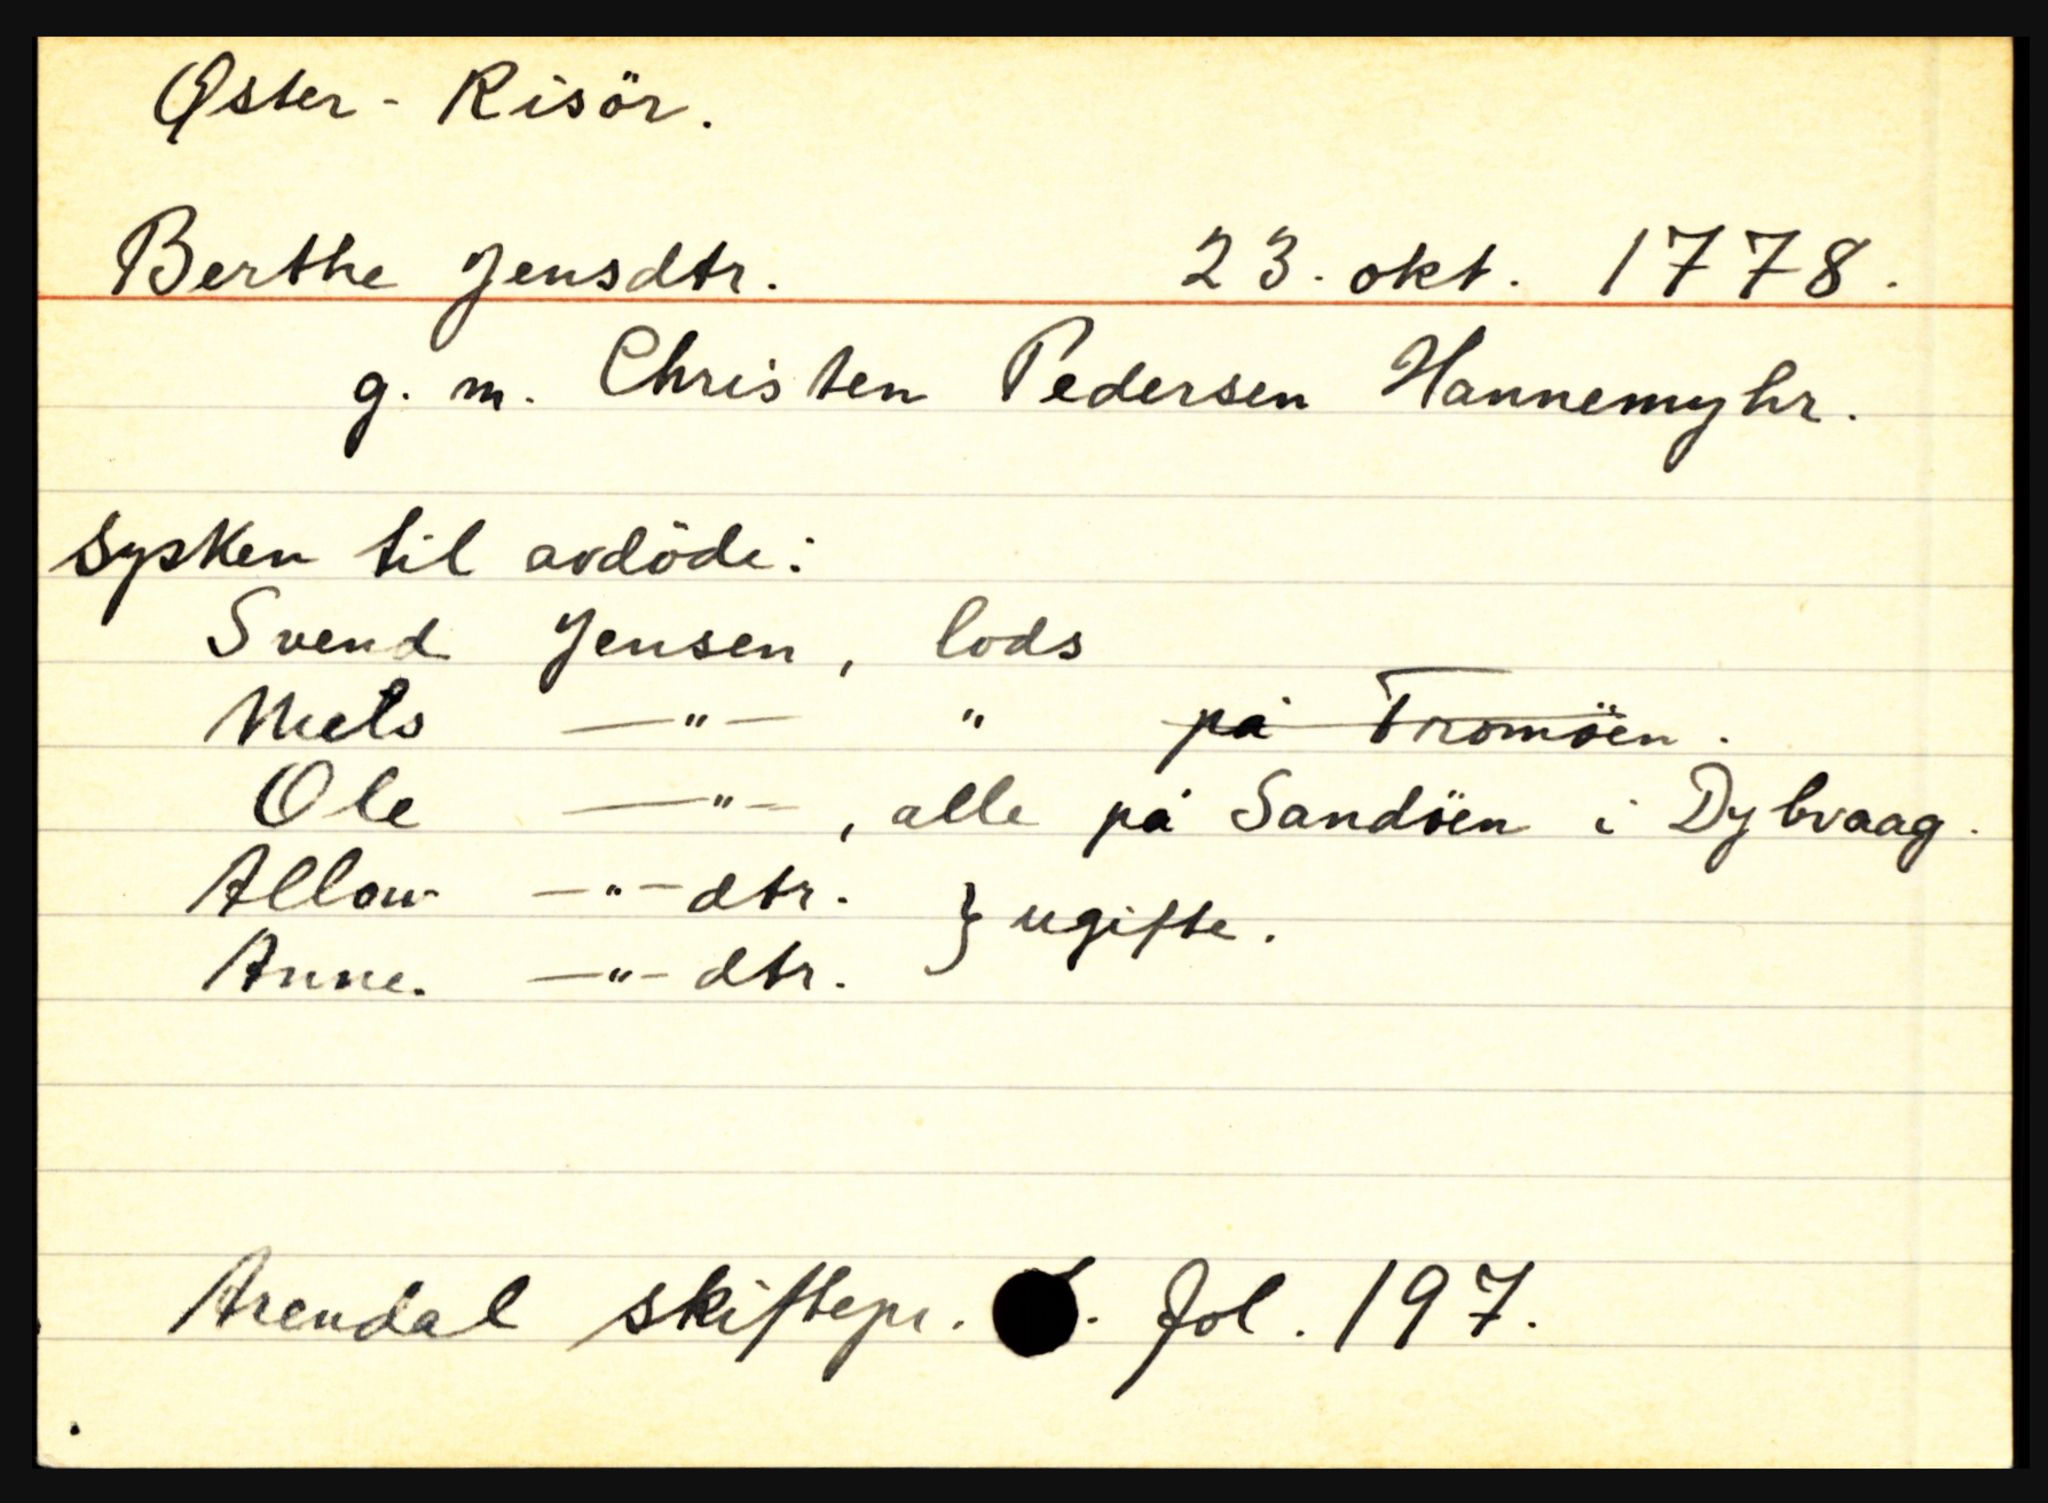 Øster - Risör.
Berthe Jensdtr. 23. okt. 1778.
g. m. Christen Pedersen Hannemyhr.
Sysken til avdöde:
Svend Jensen, lods
Niels —"— " ~~på Tromöen~~.
Ole —"—, alle på Sandöen i Dybvaag.
—"— dtr. } ugifte.
Anne. —"— dtr.
Arendal skiftepr. . fol. 197.